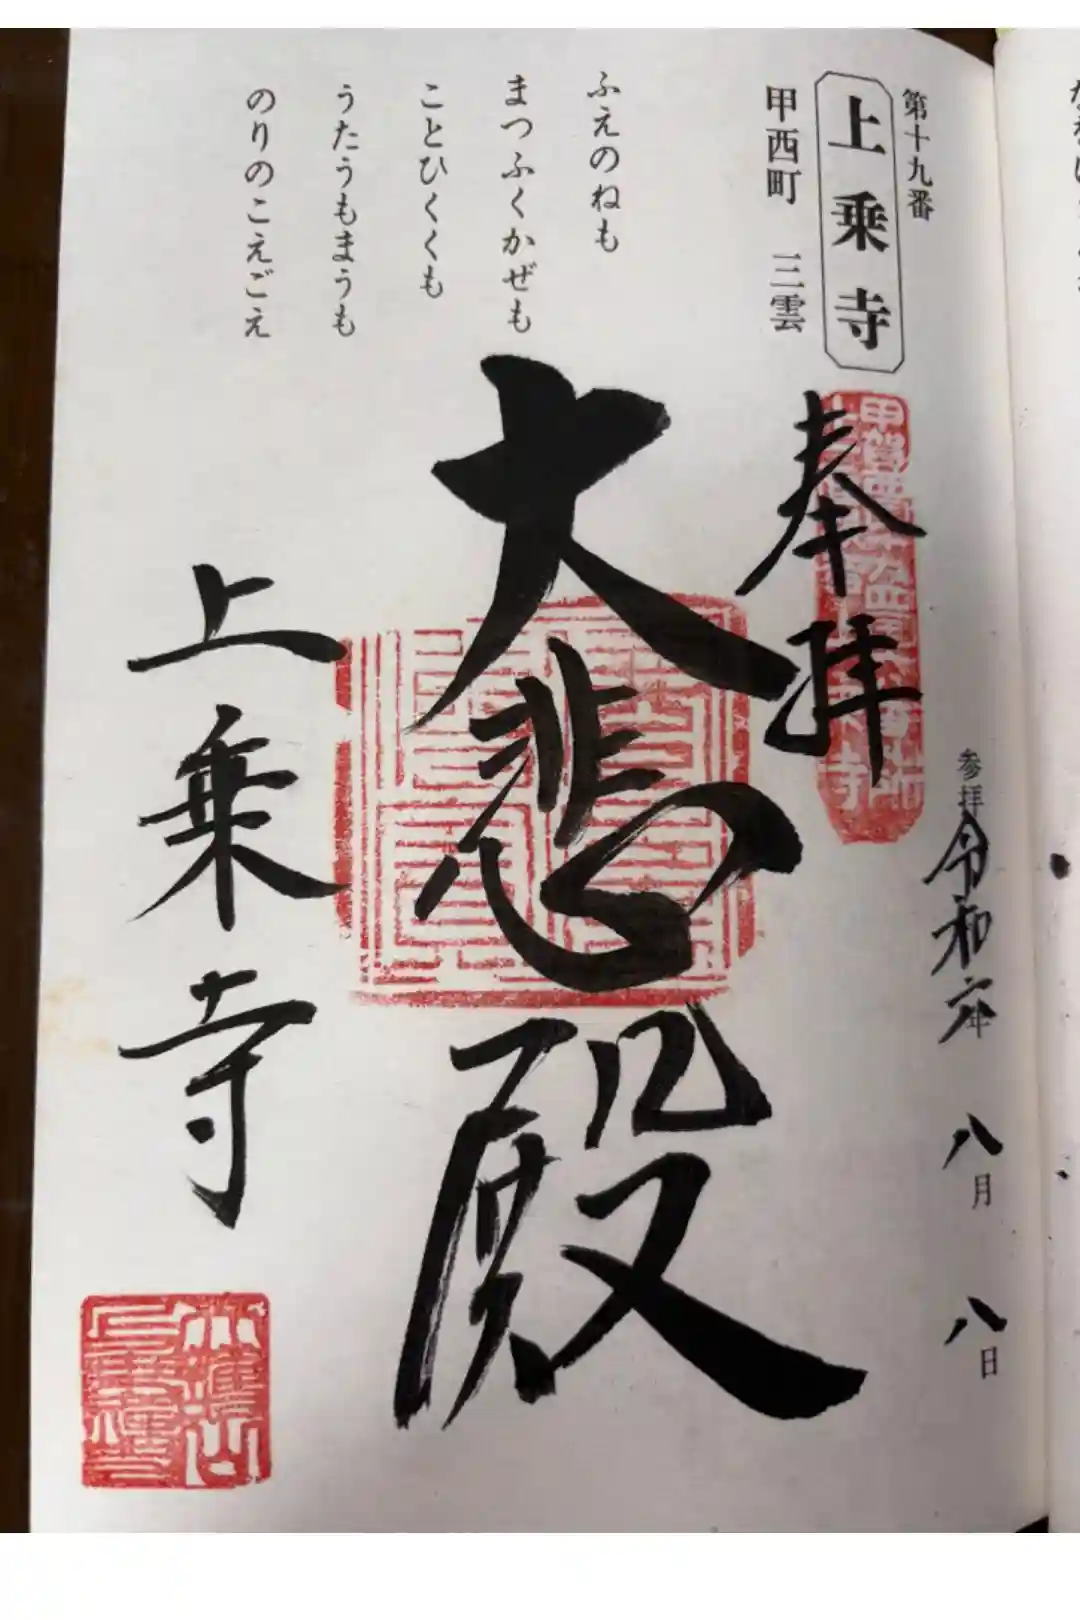 第十九番
上乗寺
甲西町 三雲
ふえのねも
まつふくかぜも
ことひくくも
うたうもまうも
のりのこえごえ
参拝令和六年 八月 八日
奉拝
大悲殿
上乗寺